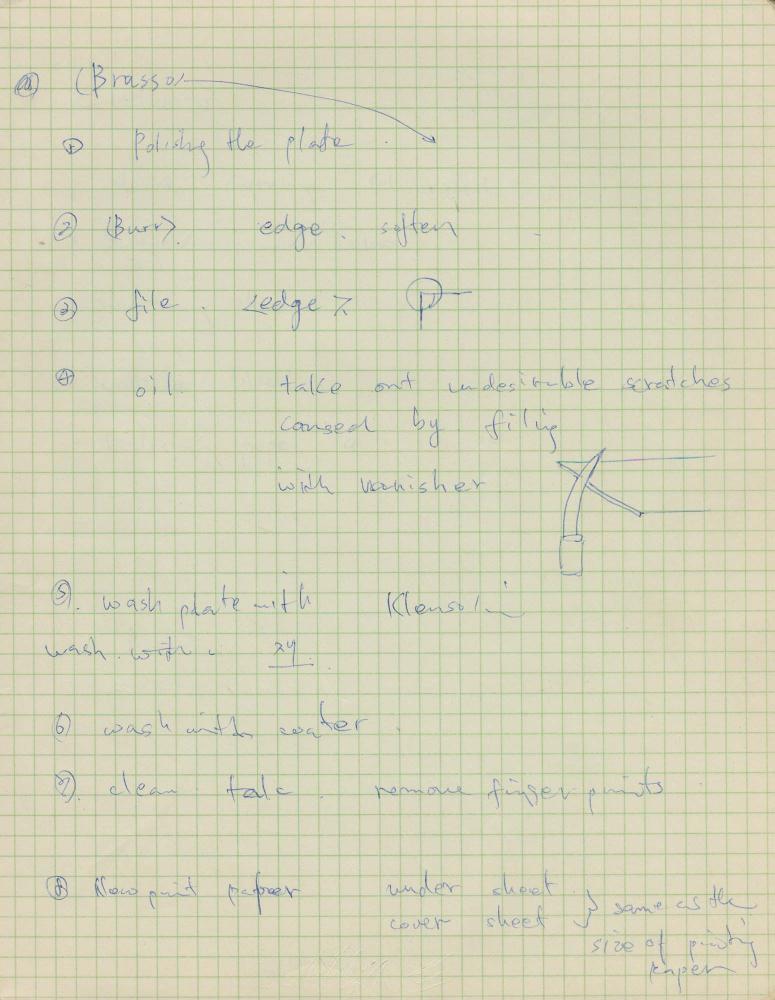 (Brasso)
① Polishg the plate.
② (Burr) edge. soften
③ file. <edge>
④ oil. take out undesirable scratches
caused by filing
with vanisher
⑤. wash plate with Klensolin
wash with
⑥ wash with water.
⑦. clean talc. remove finger prints.
⑧ Newsprint paper under sheet } same as the
cover sheet size of printing
paper